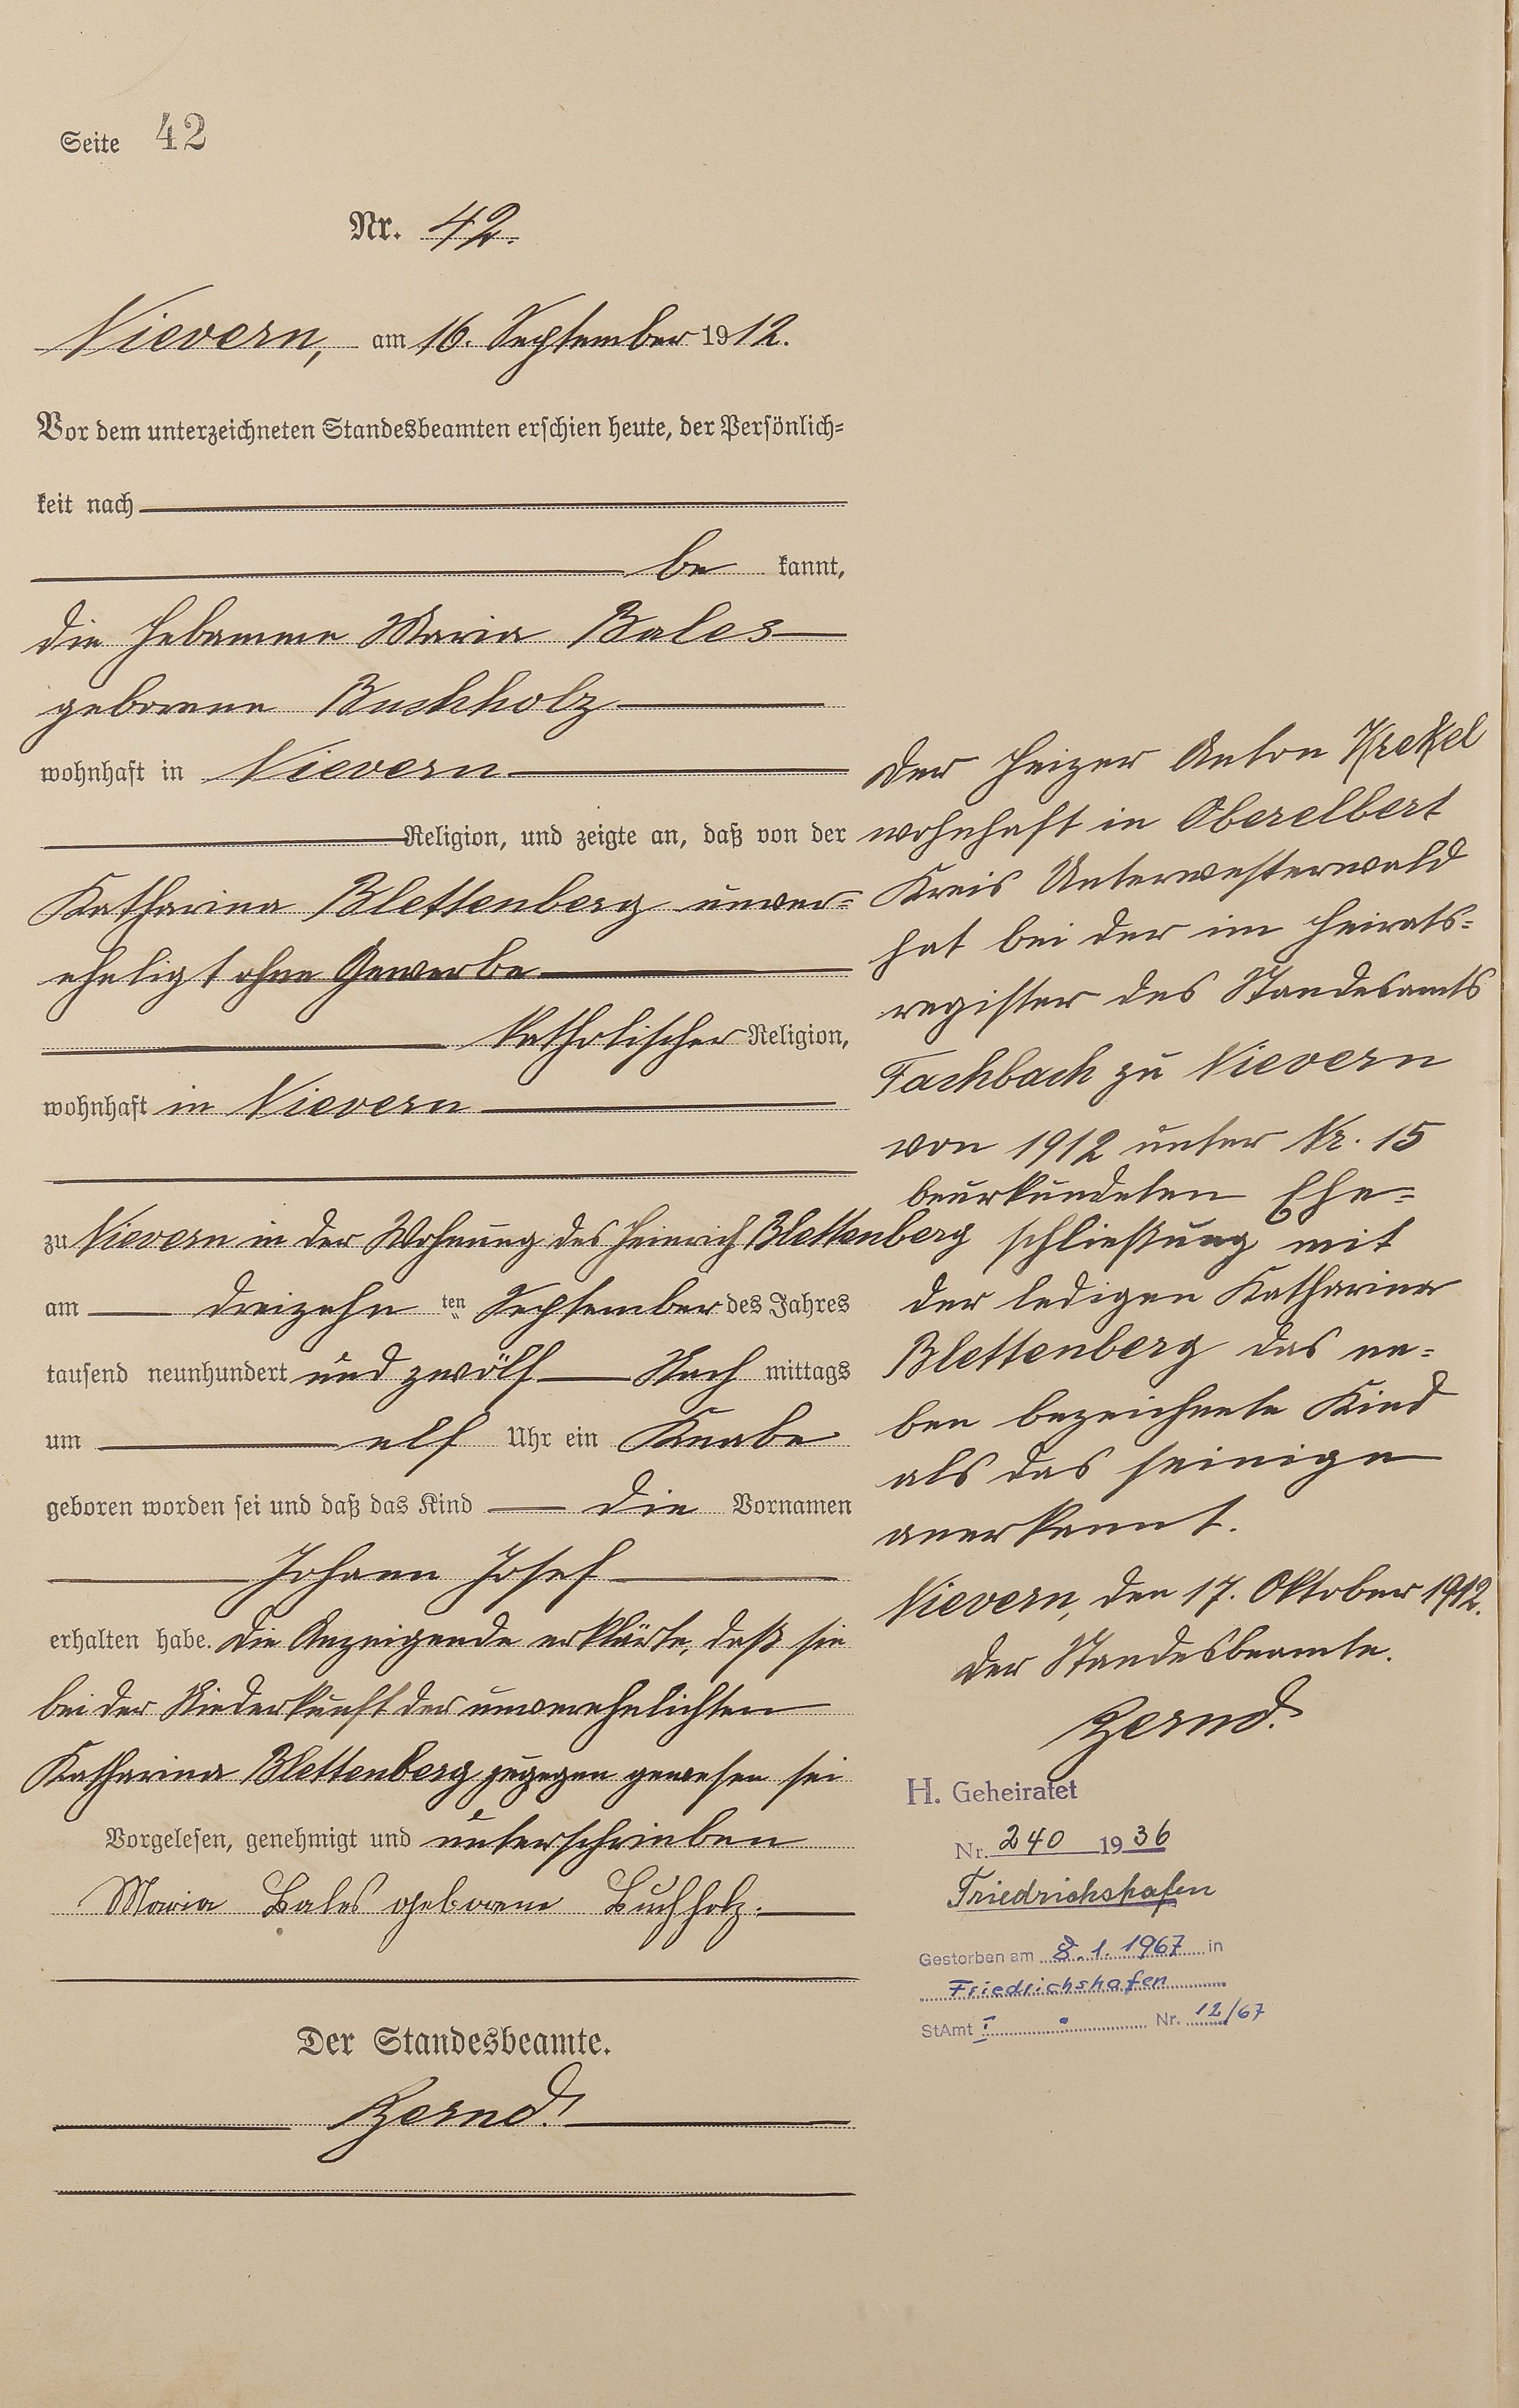 Seite 42
Nr. 42.
Nievern, am 16. September 1912.
Vor dem unterzeichneten Standesbeamten erschien heute, der Persönlich-
keit nach
be kannt,
die Hebamme Maria Bales
geborene Buchholz
wohnhaft in Nievern
Religion, und zeigte an, daß von der
Katharina Blettenberg unver-
eheligt ohne Gewerbe
katholischer Religion,
wohnhaft in Nievern
zu Nievern in der Wohnung des Heinrich Blettenberg
am dreizehn ten September des Jahres
tausend neunhundert und zwölf Nach mittags
um elf Uhr ein Knabe
geboren worden sei und daß das Kind die Vornamen
Johann Josef
erhalten habe. Die Anzeigende erklärte, daß sie
bei der Niederkunft der unverehelichten
Katharina Blettenberg zugegen gewesen sei
Vorgelesen, genehmigt und unterschrieben
Maria Bales geborene Buchholz.
Der Standesbeamte.
Zernd.
Der Heizer Anton Krekel
wohnhaft in Oberelbert
Kreis Unterwesterwald
hat bei der im Heirats-
register des Standesamts
Fachbach zu Nievern
von 1912 unter Nr. 15
beurkundeten Ehe-
schließung mit
der ledigen Katharina
Blettenberg das ne-
ben bezeichnete Kind
als das seinige
anerkannt.
Nievern, den 17. Oktober 1912.
Der Standesbeamte.
Zernd.
H. Geheiratet
Nr. 240 1936
Friedrichshafen
Gestorben am 8.1.1967 in
Friedrichshafen
StAmt I Nr. 12/67